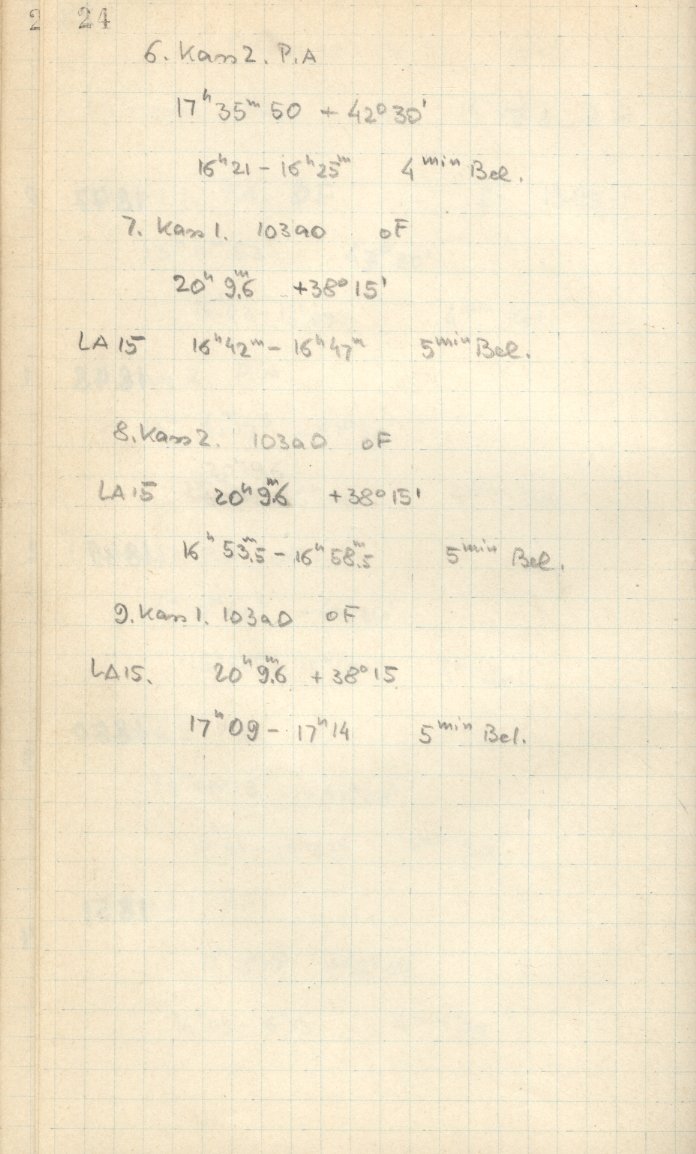 24
6. Kass 2. P.A
17ʰ 35ᵐ 50 + 42° 30'
16ʰ21 – 16ʰ25ᵐ 4 min Bel.
7. Kass 1. 103a0 oF
20ʰ 9ᵐ.6 +38° 15'
LA 15 16ʰ42ᵐ – 16ʰ47ᵐ 5 min Bel.
8. Kass 2. 103a0 oF
LA 15 20ʰ 9ᵐ.6 +38° 15'
16ʰ 53ᵐ.5 – 16ʰ 58ᵐ.5 5 min Bel.
9. Kass 1. 103a0 oF
LA 15. 20ʰ 9ᵐ.6 +38° 15
17ʰ 09 – 17ʰ 14 5 min Bel.